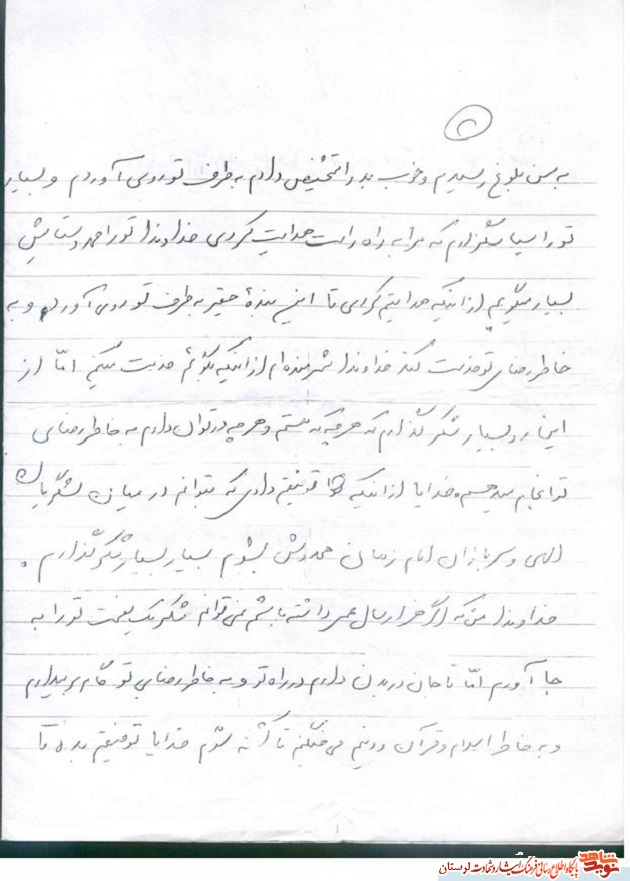 ۵
به سن بلوغ رسیدم و خوب بد را تشخیص دادم به طرف تو روی آوردم و بسیار
تو را سپاسگزارم که مرا به راه راست هدایت کردی خداوندا تو را حمد و ستایش
بسیار میگویم از اینکه هدایتم کردی تا این بندهٔ حقیر به طرف تو روی آورد و به
خاطر رضای تو خدمت کند خداوندا شرمنده ام از اینکه بگویم خدمت میکنم امّا از
این رو بسیار شکر گذارم که هر چه که هستم و هر چه در توان دارم به خاطر رضای
تو انجام میدهم خدایا از اینکه توفیقم دادی که بتوانم در میان لشگریان
الهی و سربازان امام زمان همدوش بشوم بسیار بسیار شکر گذارم .
خداوندا من که اگر هزار سال عمر داشته باشم نمی توانم شکر یک نعمت تو را به
جا آورم امّا تا جان در بدن دارم در راه تو و به خاطر رضای تو گام بر میدارم
و به خاطر اسلام و قرآن و دینم می جنگم تا کشته شوم خدایا توفیقم بده تا
نوید شاهد
پایگاه اطلاع رسانی فرهنگ ایثار و شهادت لرستان